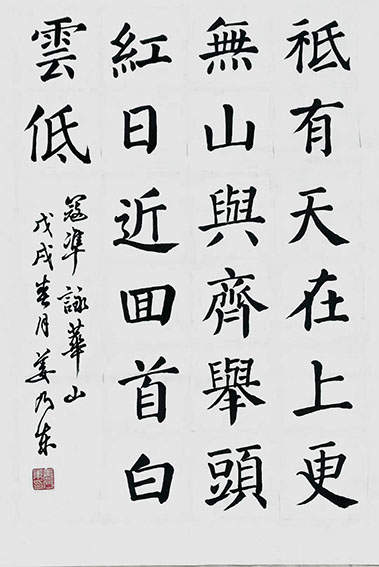 祗有天在上更
無山與齊舉頭
紅日近回首白
雲低
寇準 詠華山
戊戌春月姜乃東